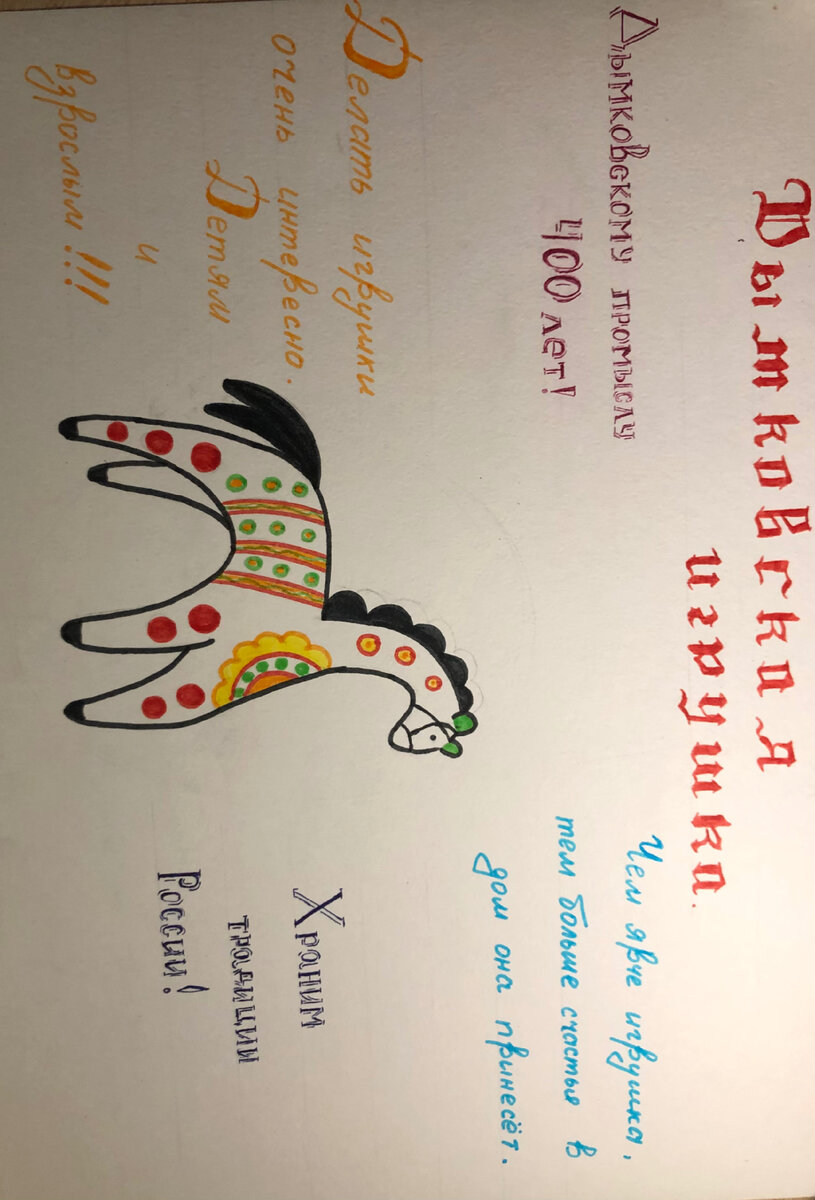 Дымковская
игрушка.
Дымковскому промыслу
400 лет!
Делать игрушки
очень интересно.
Детям
и
взрослым!!!
Чем ярче игрушка,
тем больше счастья в
дом она принесёт.
Храним
традиции
России!